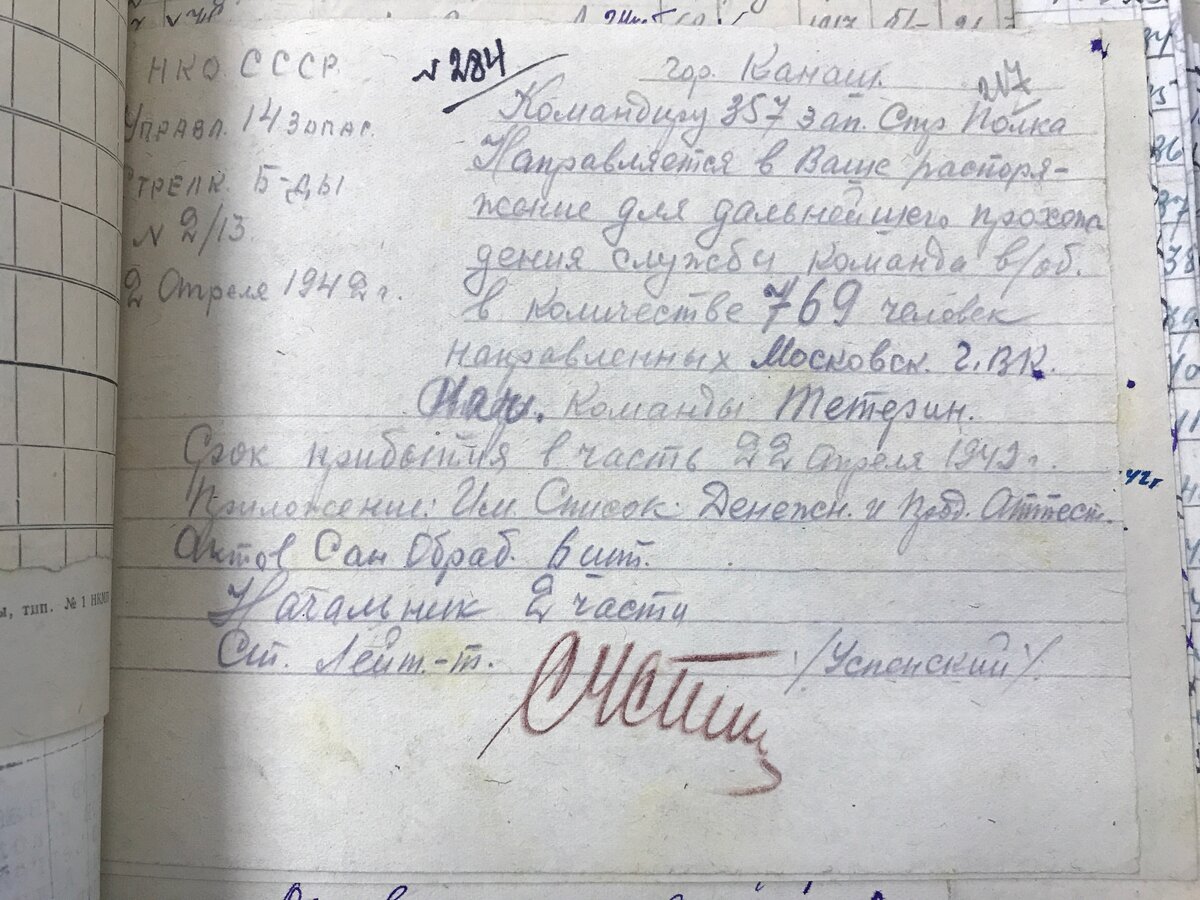 НКО. СССР.
Управл. 14 Запас.
Стрелк. Б-ды
N 2/13.
2 Апреля 1942 г.
N 284
гор. Канаш.
217
Командиру 357 зап. Стр Полка
Направляется в Ваше распоря-
жение для дальнейшего прохож
дения службы команда в/об.
в количестве 769 человек
направленных Московск. г.ВК.
Нач. Команды Тетерин.
Срок прибытия в часть 22 Апреля 1942 г.
42 г
Приложение: Им. Список. Денежн. и Прод. Аттест.
Актов Сан Обраб. 6 шт.
Начальник 2 части
Ст. Лейт-т. /Успенский/.
ы, тип. № 1 НКМП